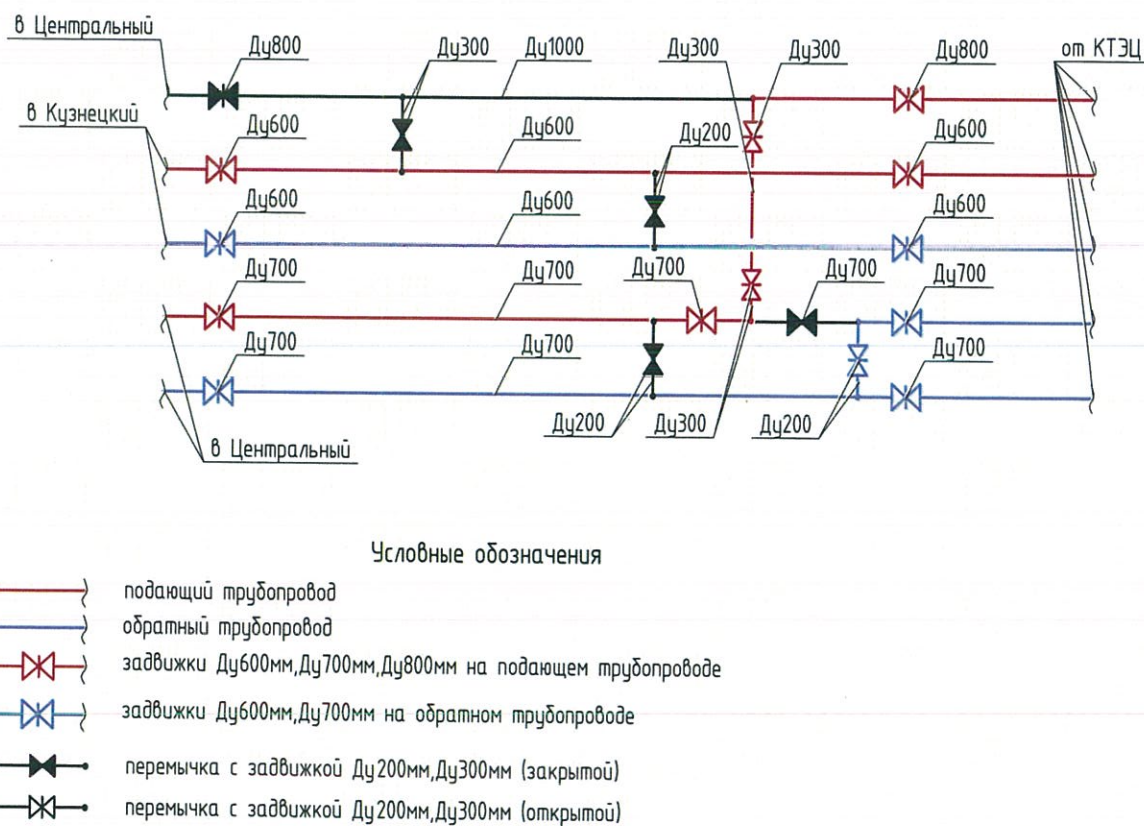 в Центральный
Ду800
Ду300
Ду1000
Ду300
Ду300
Ду800
от КТЭЦ
в Кузнецкий
Ду600
Ду600
Ду200
Ду600
Ду600
Ду600
Ду600
Ду700
Ду700
Ду700
Ду700
Ду700
Ду700
Ду700
Ду700
Ду200
Ду300
Ду200
в Центральный
Условные обозначения
подающий трубопровод
обратный трубопровод
задвижки Ду600мм,Ду700мм,Ду800мм на подающем трубопроводе
задвижки Ду600мм,Ду700мм на обратном трубопроводе
перемычка с задвижкой Ду200мм,Ду300мм (закрытой)
перемычка с задвижкой Ду200мм,Ду300мм (открытой)